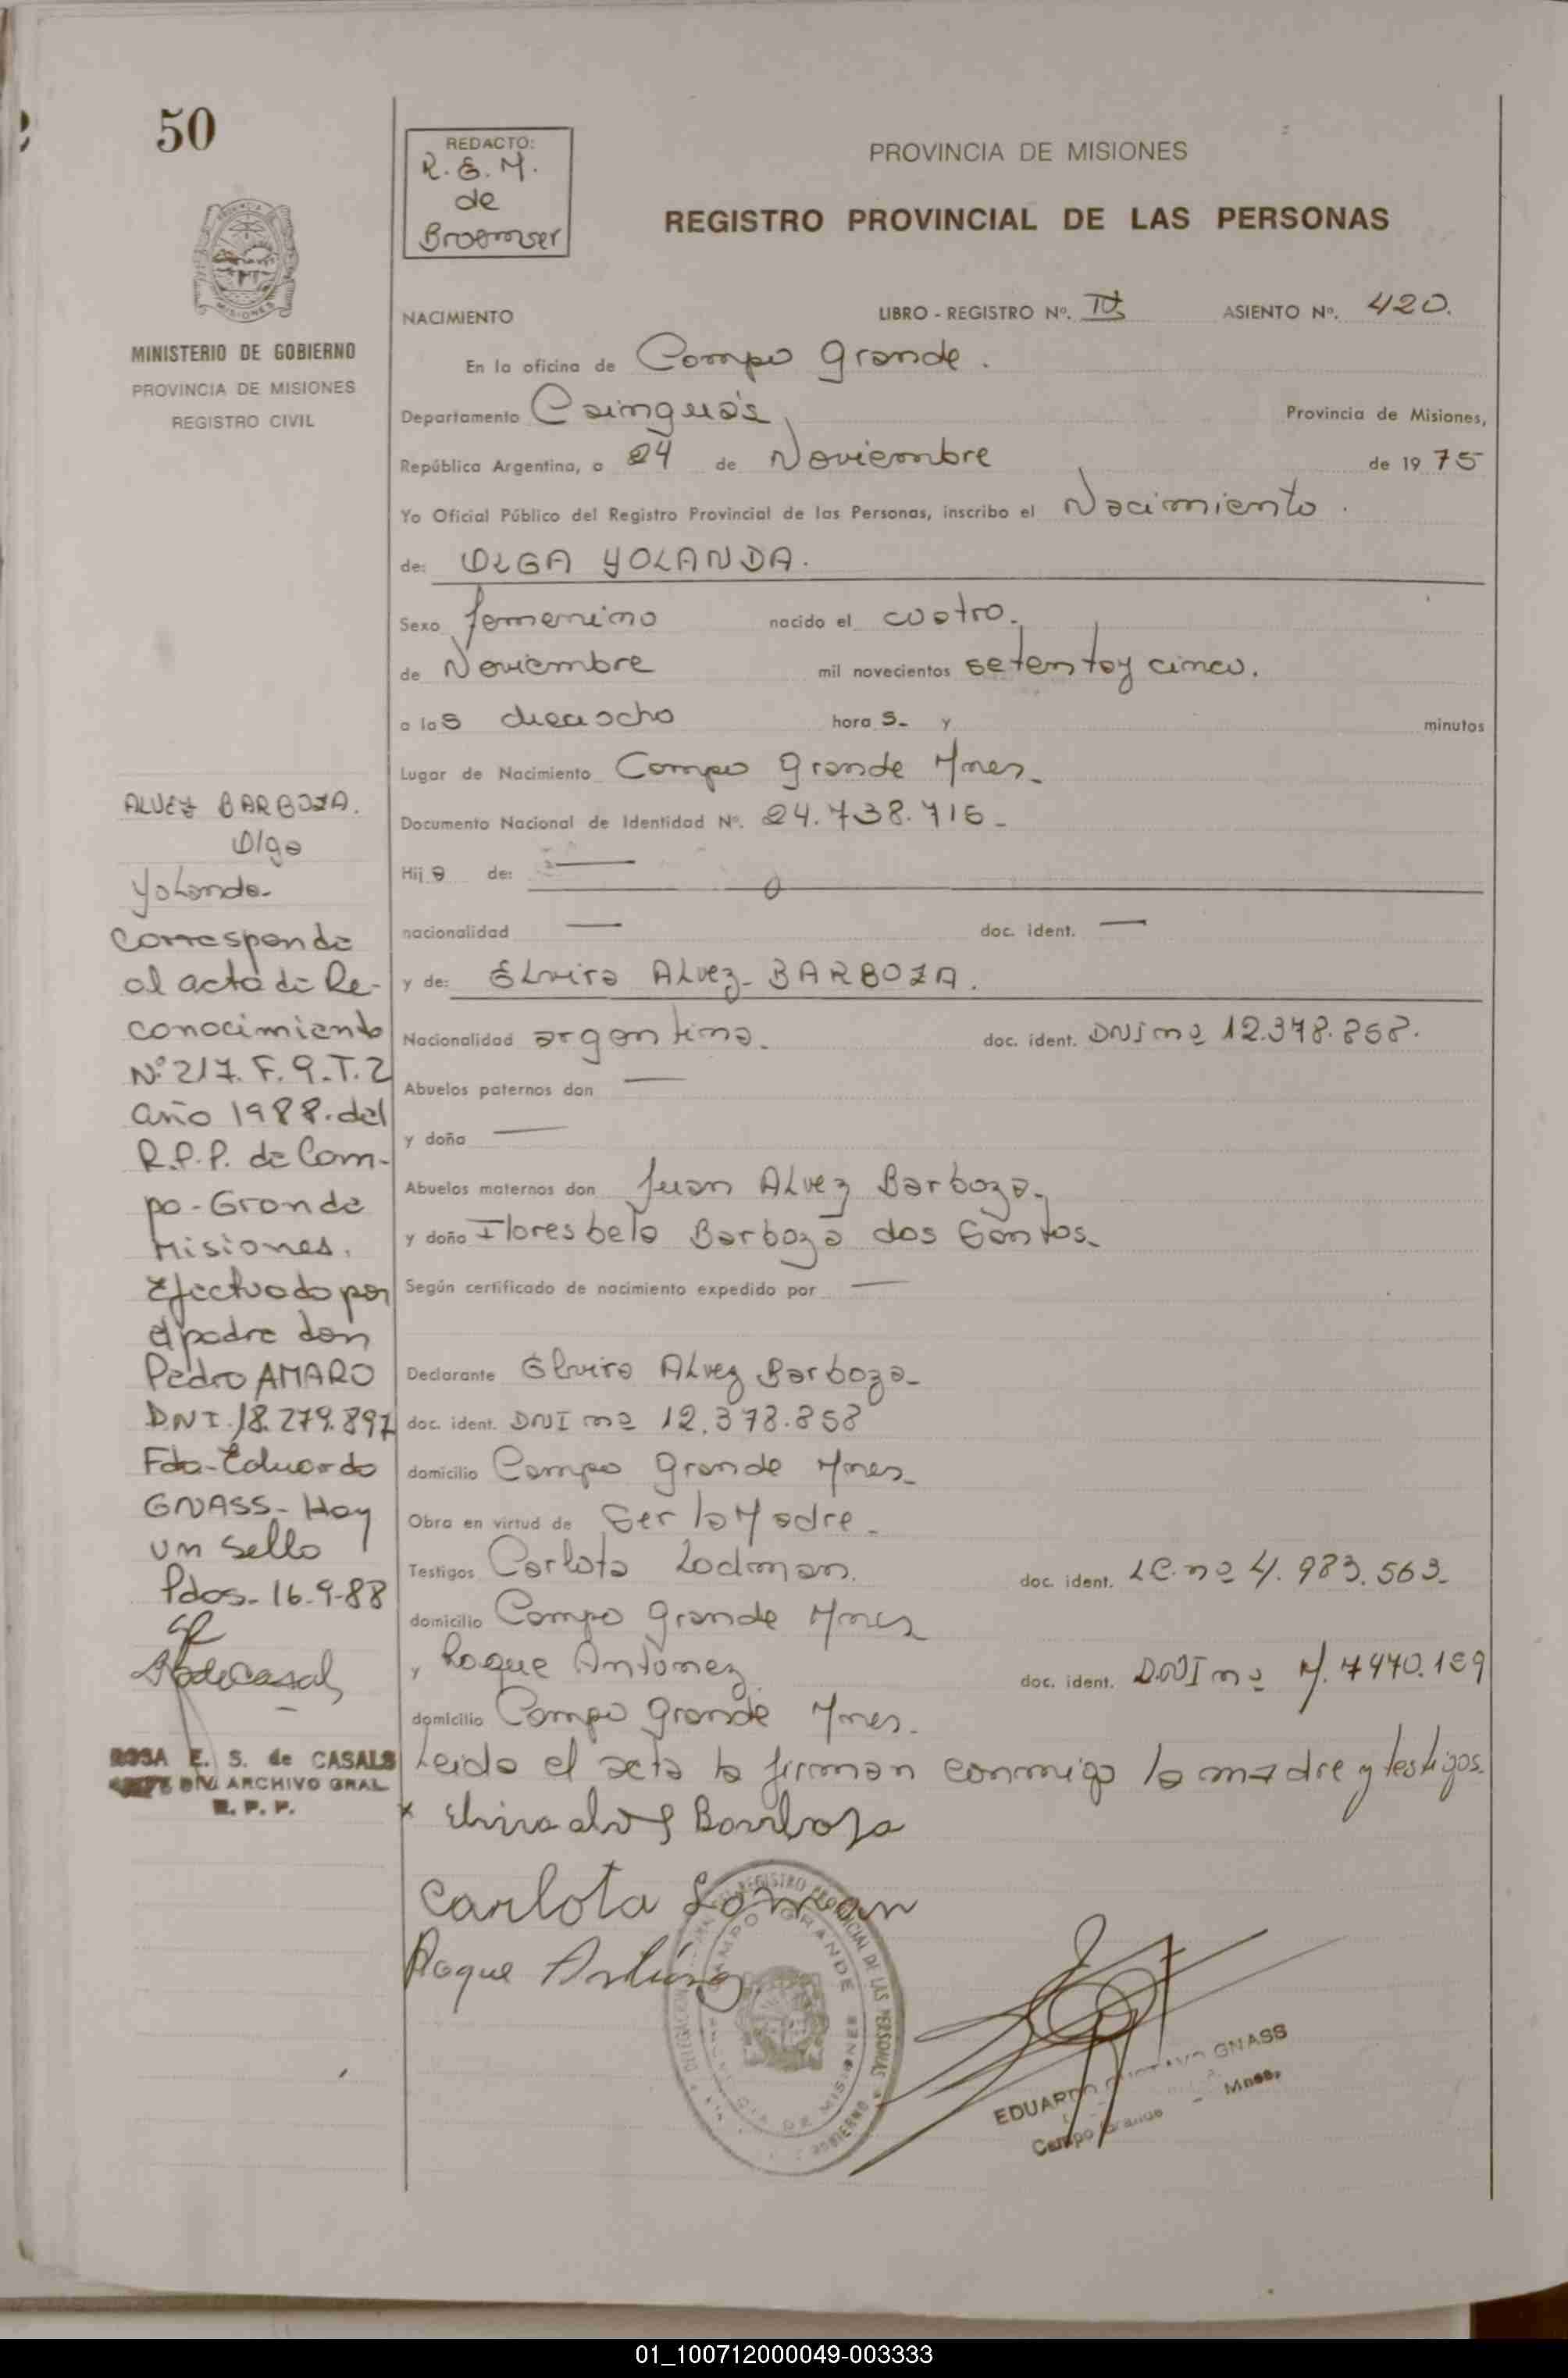 50
MINISTERIO DE GOBIERNO
PROVINCIA DE MISIONES
REGISTRO CIVIL
REDACTO:
R.E.M.
de
Broemser
PROVINCIA DE MISIONES
REGISTRO PROVINCIAL DE LAS PERSONAS
NACIMIENTO LIBRO - REGISTRO Nº. ASIENTO Nº. 420.
En la oficina de Campo Grande.
Departamento Cainguás Provincia de Misiones,
República Argentina, a 24 de Noviembre de 1975
Yo Oficial Público del Registro Provincial de las Personas, inscribo el Nacimiento.
de: OLGA YOLANDA.
Sexo femenino nacido el cuatro.
de Noviembre mil novecientos setenta y cinco.
a las dieciocho horas. y minutos
Lugar de Nacimiento Campo Grande Mnes.
Documento Nacional de Identidad Nº. 24.738.716-
Hija de: —
nacionalidad — doc. ident. —
y de: Elvira ALvez-BARBOZA.
Nacionalidad argentina. doc. ident. DNI nº 12.378.858.
Abuelos paternos don —
y doña —
Abuelos maternos don Juan ALvez Barboza.
y doña Floresbela Barboza dos Santos.
Según certificado de nacimiento expedido por —
Declarante Elvira ALvez Barboza-
doc. ident. DNI nº 12.378.858
domicilio Campo Grande Mnes-
Obra en virtud de Ser la Madre-
Testigos Carlota Lodman. doc. ident. LC. nº 4.983.563-
domicilio Campo Grande Mnes
y Roque Antonez. doc. ident. DNI nº M. 7470.159
domicilio Campo Grande Mnes.
Leida el acta la firman conmigo la madre y testigos.
x Elvira alvez Barboza
Carlota Loman
Roque
ALVEZ BARBOZA.
Olga
Yolanda-
Corresponde
al acta de Re-
conocimiento
Nº 217. F. 9. T. 2
año 1988. del
R.P.P. de Cam-
po-Grande
Misiones.
Efectuado por
el padre don
Pedro AMARO
DNI. 18.279.897
Fdo-Eduardo
GNASS- Hay
un Sello
Pdas- 16-9-88
ROSA E. S. de CASALS
JEFE DIV. ARCHIVO GRAL
R. P. P.
REGISTRO PROVINCIAL DE LAS PERSONAS
CAMPO GRANDE
MISIONES
EDUARDO GUSTAVO GNASS
Campo Grande - Mnes.
01_100712000049-003333